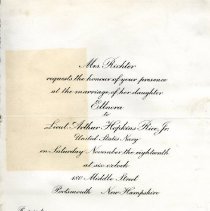 Mrs. Richter
requests the honour of your presence
at the marriage of her daughter
Ellnora
to
Lieut. Arthur Hopkins Rice, Jr.
United States Navy
on Saturday November the eighteenth
at six o'clock
800 Middle Street
Portsmouth New Hampshire